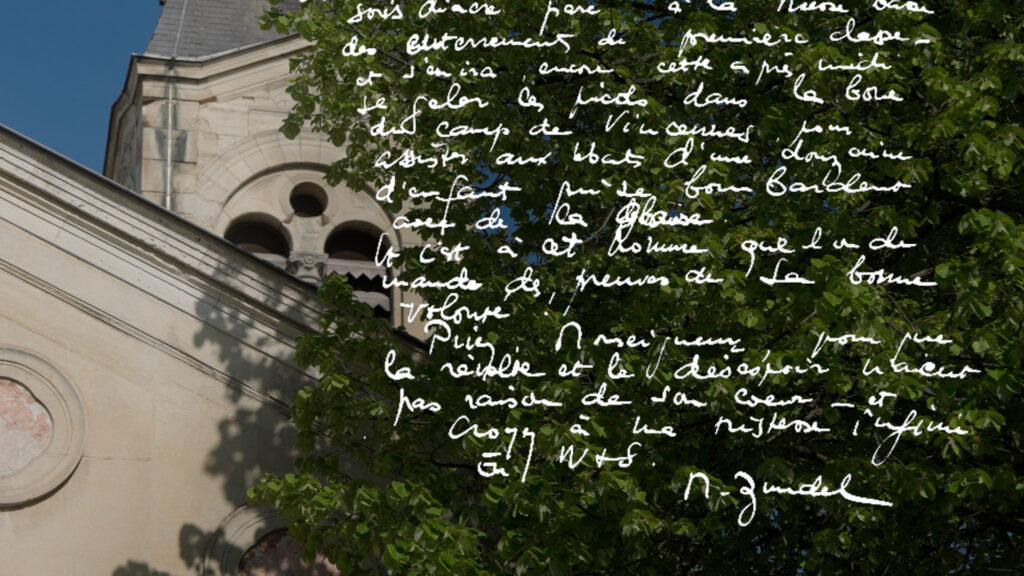 sous diacre paré à la messe
des enterrement de première classe -
et s'en ira encore cette après midi
se geler les pieds dans la boue
du camp de Vincennes pour
assister aux ébats d'une douzaine
d'enfant qui se bombardent
avec de la glaise
Et c'est à cet homme que l'on de
mande des preuves de sa bonne
volonté.
Priez Monseigneur, pour que
la révolte et le désespoir n'aient
pas raison de son coeur - et
Croyez à ma tristesse infinie
En N+S.
M. Zundel